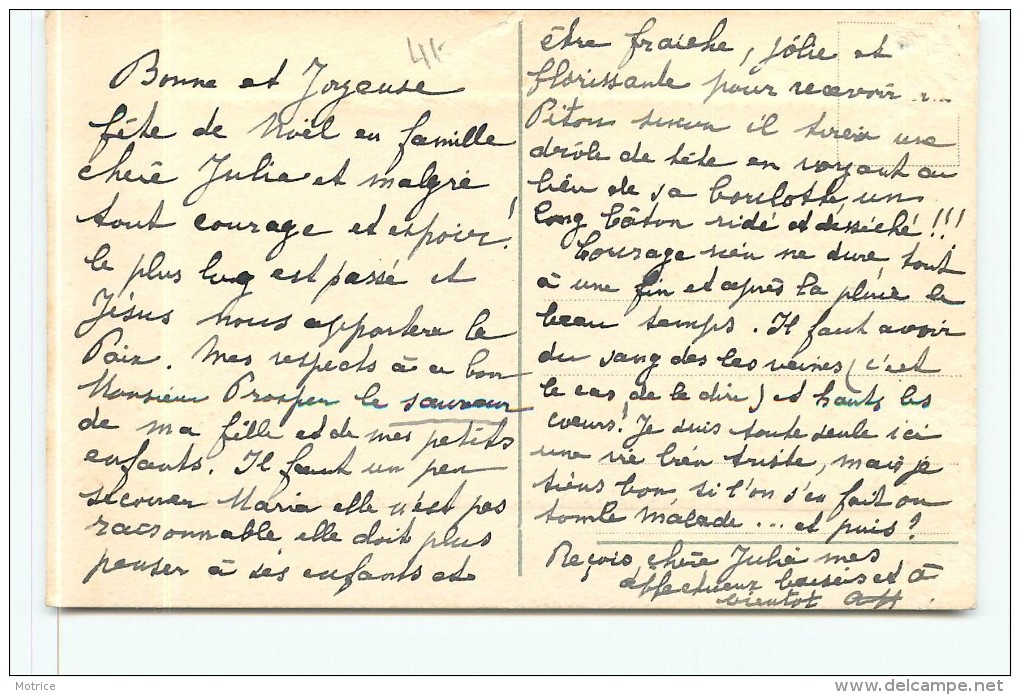 41
Bonne et Joyeuse
fête de Noël en famille
chère Julia et malgré
tout courage et espoir!
le plus long est passé et
Jésus nous apportera la
Paix. Mes respects à ce bon
Monsieur Prosper le sauveur
de ma fille et de mes petits
enfants. Il faut un peu
secouer Maria elle n'est pas
raisonnable elle doit plus
penser à ses enfants et
être fraiche, jolie et
florissante pour recevoir
Piton sinon il tirera une
drôle de tête en voyant au
lieu de sa boulotte, un
long bâton ridé et desséché!!!
Courage rien ne dure, tout
à une fin et après la pluie le
beau temps. Il faut avoir
du sang des les veines (c'est
le cas de le dire) et hauts les
coeurs! Je suis toute seule ici
une vie bien triste, mais je
tiens bon, si l'on s'en fait on
tombe malade... et puis?
Reçois, chère Julia mes
affectueux baisers et à
bientôt
Motrice
www.delcampe.net